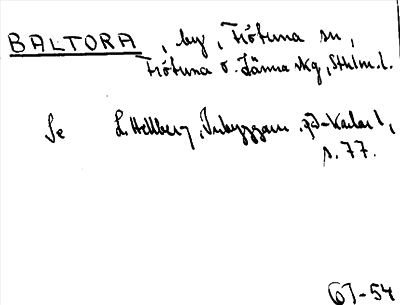 BALTORA, by, Frötuna sn,
Frötuna o. Länna skg, Sthlm. l.
Se L. Hellberg, Inbyggarn. på -karlar 1,
s. 77.
GJ-54